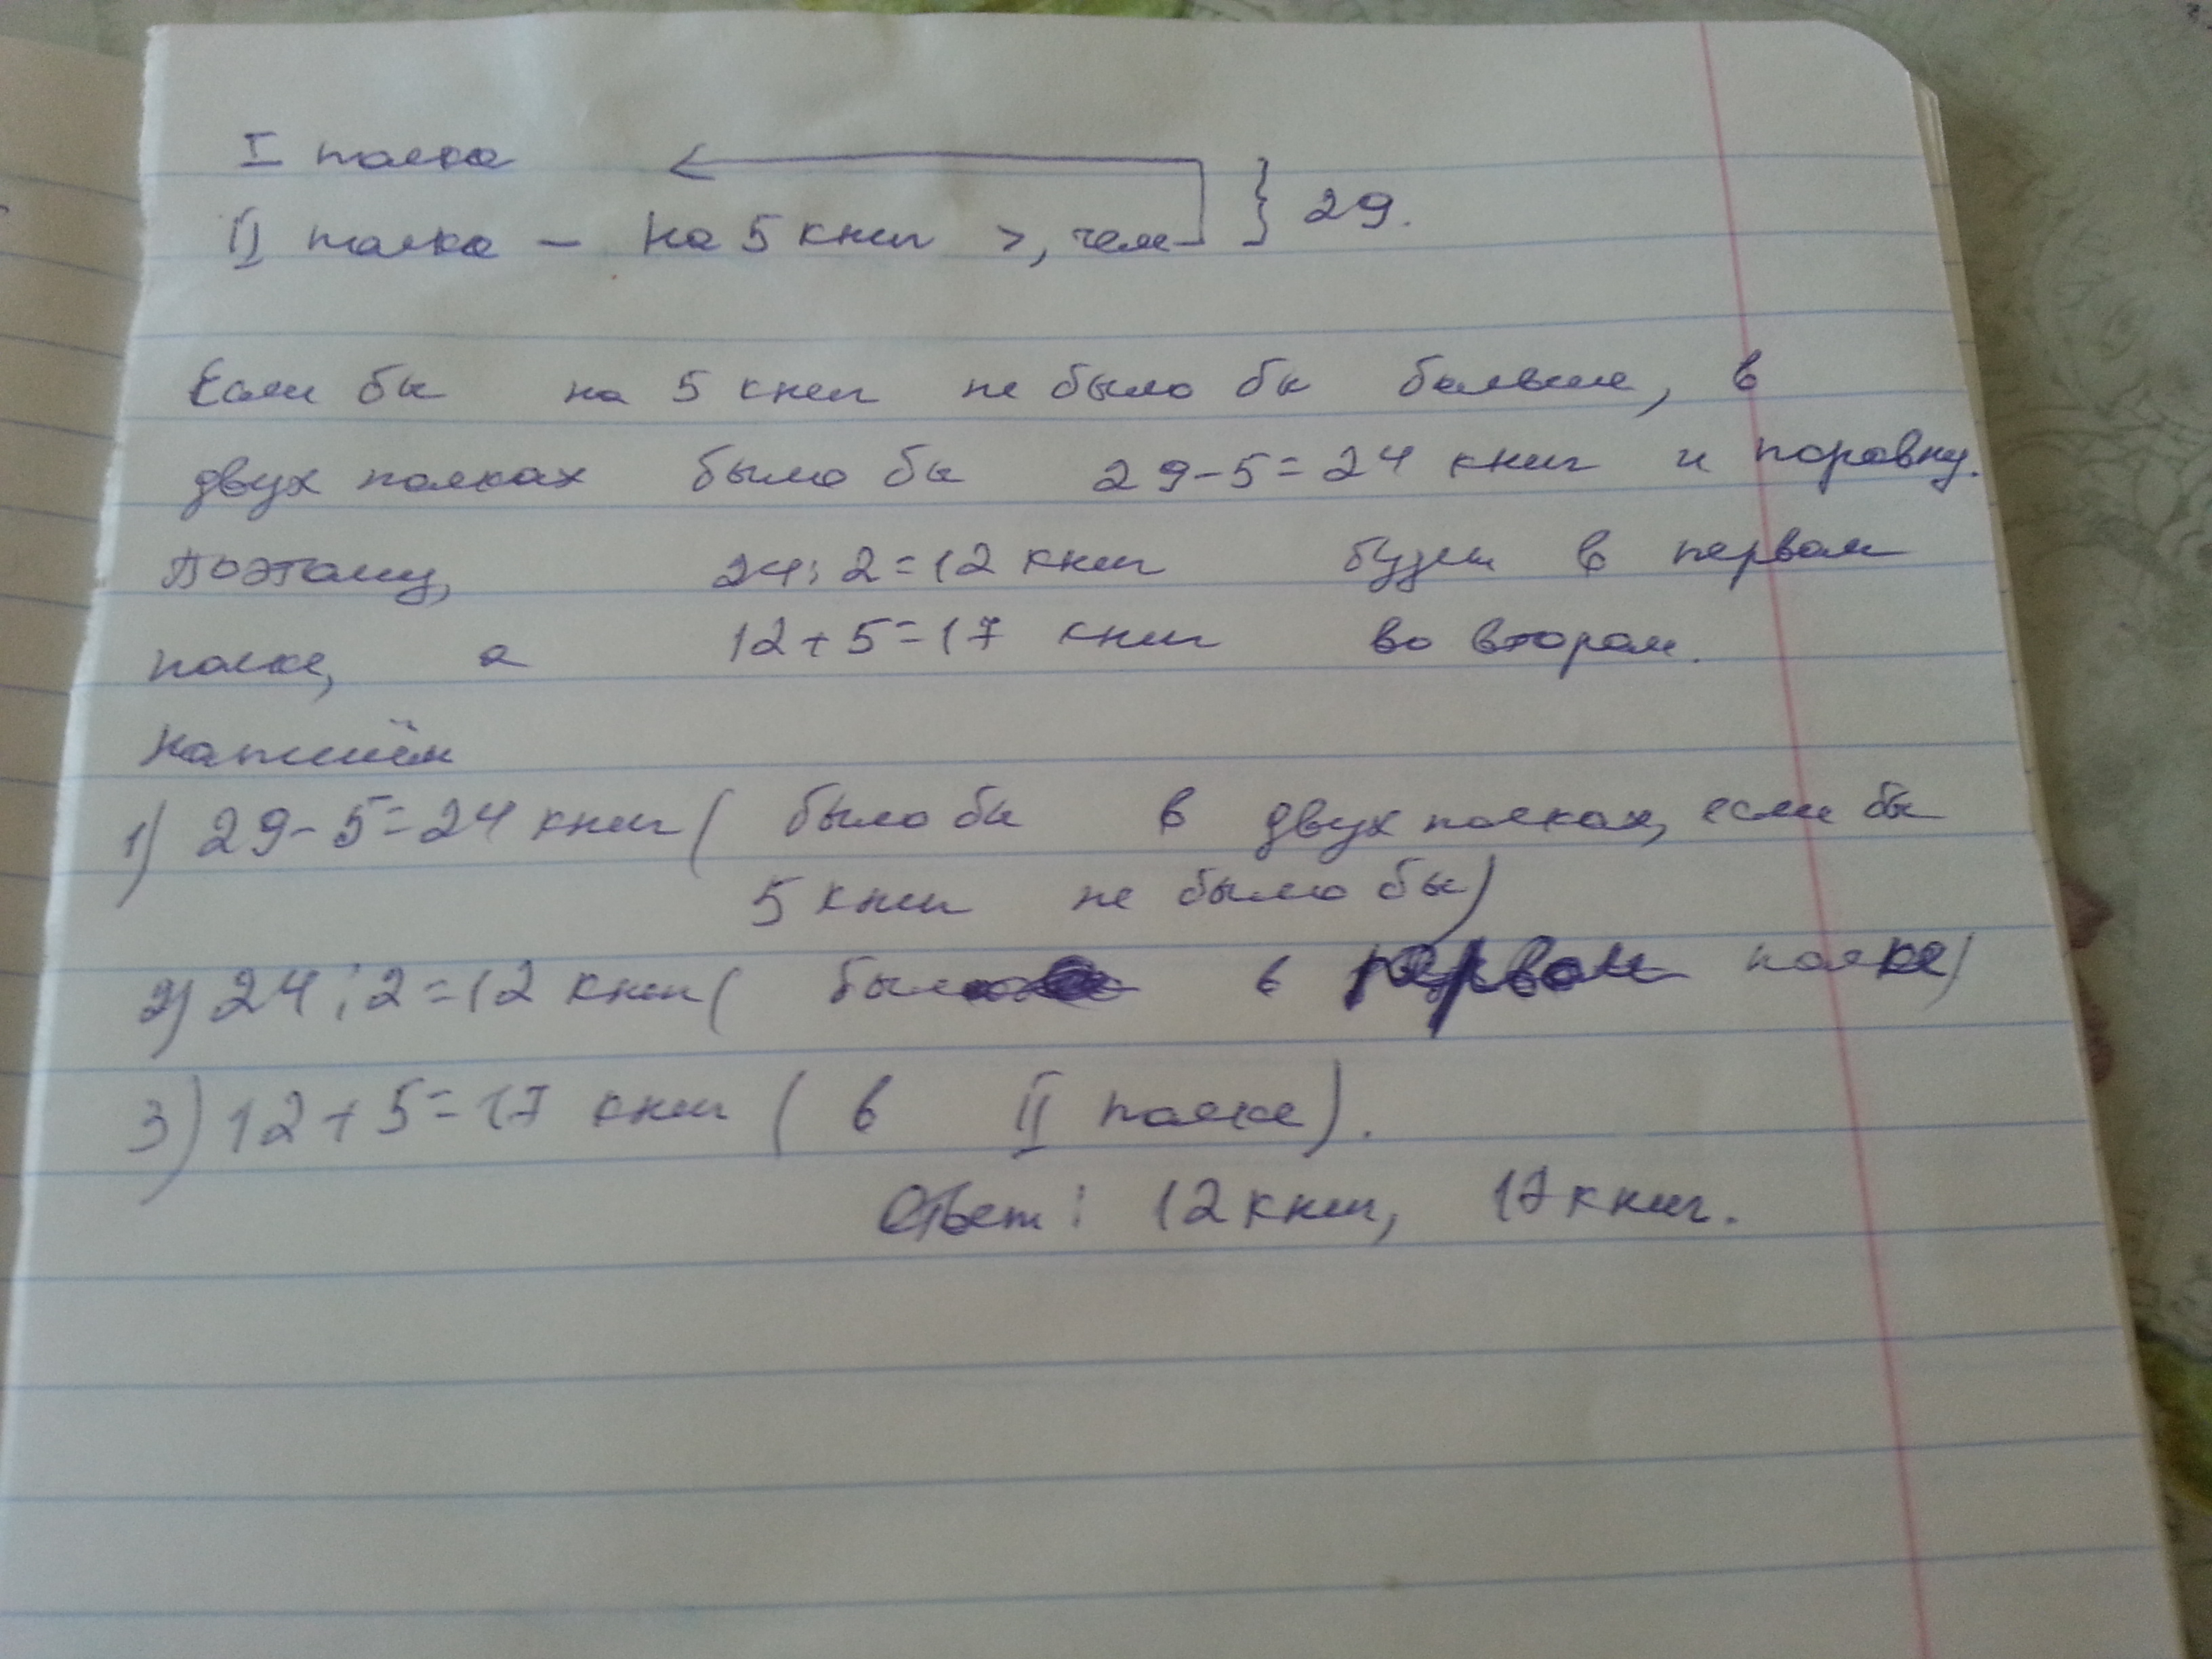 I полка
II полка – на 5 книг >, чем } 29.
Если бы на 5 книг не было бы больше, в
двух полках было бы 29-5=24 книг и поровну.
Поэтому, 24:2=12 книг будет в первом
полке, а 12+5=17 книг во втором.
Напишем
1) 29-5=24 книг ( было бы в двух полках, если бы
5 книг не было бы)
2) 24:2=12 книг ( было в первом полке)
3) 12+5=17 книг ( в II полке).
Ответ: 12 книг, 17 книг.